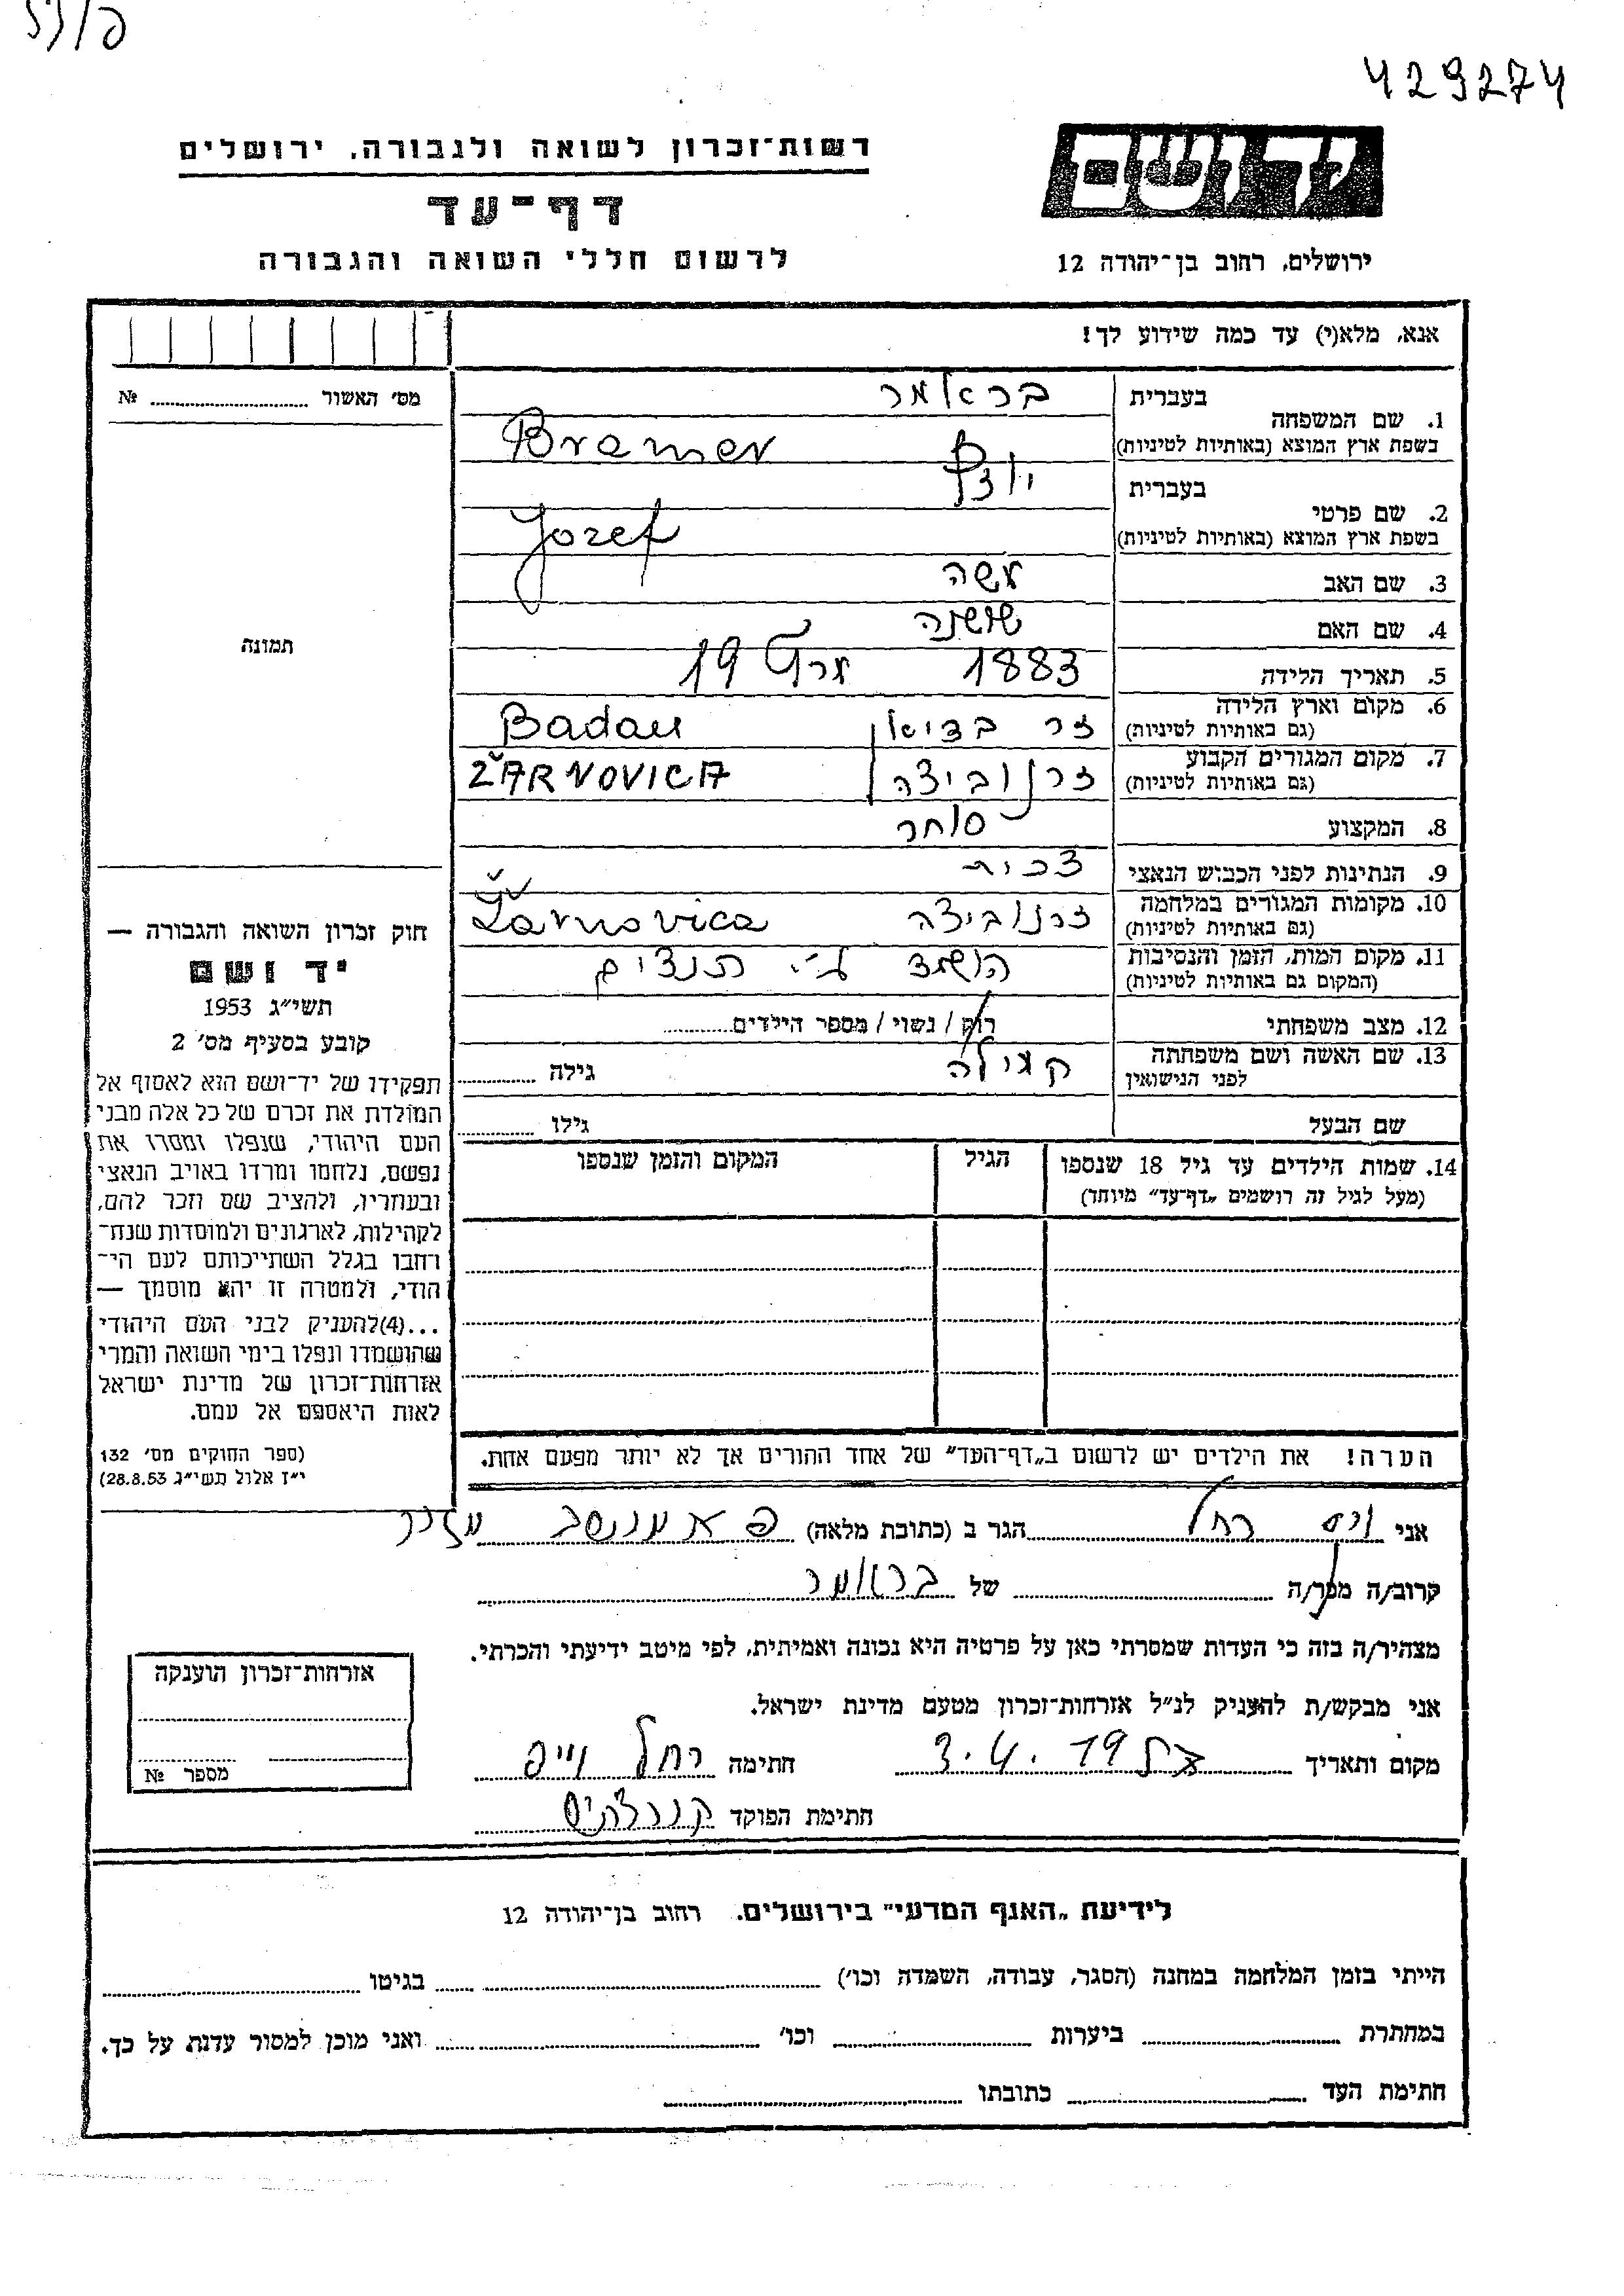 429274
רשות־זכרון לשואה ולגבורה, ירושלים
יד ושם
דף־עד
לרשום חללי השואה והגבורה
ירושלים, רחוב בן־יהודה 12
אנא, מלא(י) עד כמה שידוע לך!
מס׳ האשור № 
1. שם המשפחה בעברית בראמר
בשפת ארץ המוצא (באותיות לטיניות) Bramer
2. שם פרטי בעברית יוזף
בשפת ארץ המוצא (באותיות לטיניות) Jozef
3. שם האב משה
4. שם האם שושנה
תמונה
5. תאריך הלידה 1883 מרץ 19
6. מקום וארץ הלידה (גם באותיות לטיניות) Badau
7. מקום המגורים הקבוע (גם באותיות לטיניות) זרנוביצה ŽARNOVICA
8. המקצוע סוחר
9. הנתינות לפני הכבוש הנאצי צכית
10. מקומות המגורים במלחמה (גם באותיות לטיניות) זרנוביצה Žarnovica
11. מקום המות, הזמן והנסיבות (המקום גם באותיות לטיניות) הושמד ע״י
12. מצב משפחתי רוק / נשוי / מספר הילדים
13. שם האשה ושם משפחתה לפני הנישואין קמילה גילה
שם הבעל גילו
14. שמות הילדים עד גיל 18 שנספו הגיל המקום והזמן שנספו
(מעל לגיל זה רושמים „דף־עד״ מיוחד)
חוק זכרון השואה והגבורה —
יד ושם
תשי״ג 1953
קובע בסעיף מס׳ 2
תפקידו של יד־ושם הוא לאסוף אל
המולדת את זכרם של כל אלה מבני
העם היהודי, שנפלו ומסרו את
נפשם, נלחמו ומרדו באויב הנאצי
ובעוזריו, ולהציב שם וזכר להם,
לקהילות, לארגונים ולמוסדות שנח־
רחבו בגלל השתייכותם לעם הי־
הודי, ולמטרה זו יהא מוסמך —
...(4)להעניק לבני העם היהודי
שהושמדו ונפלו בימי השואה והמרי
אזרחות־זכרון של מדינת ישראל
לאות היאספם אל עמם.
(ספר החוקים מס׳ 132
י״ז אלול תשי״ג 28.8.53)
הערה! את הילדים יש לרשום ב„דף־העד״ של אחד ההורים אך לא יותר מפעם אחת.
אני ויס רחל הגר ב (כתובת מלאה)
קרוב/ה מכר/ה של בראמר
מצהיר/ה בזה כי העדות שמסרתי כאן על פרטיה היא נכונה ואמיתית, לפי מיטב ידיעתי והכרתי.
אני מבקש/ת להעניק לנ״ל אזרחות־זכרון מטעם מדינת ישראל.
מקום ותאריך 3.4.19 חתימה רחל וייס
חתימת הפוקד
אזרחות־זכרון הוענקה
מספר №
לידיעת „האגף המדעי״ בירושלים, רחוב בן־יהודה 12
הייתי בזמן המלחמה במחנה (הסגר, עבודה, השמדה וכו׳) בגיטו
במחתרת ביערות וכו׳ ואני מוכן למסור עדות על כך.
חתימת העד כתובתו